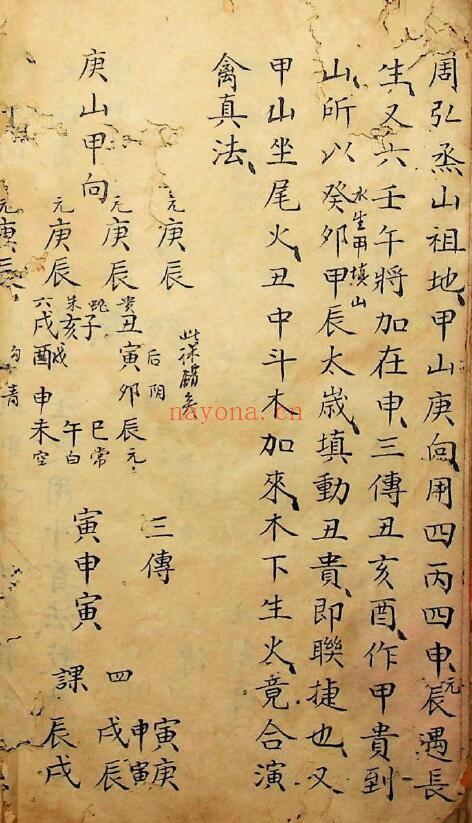 周弘烝山祖地甲山庚向用四丙四申元辰遇長
生又六壬午將加在申三傳丑亥酉作甲貴到
山所以癸卯甲辰太歲填動丑貴即聯捷也又
水生甲填山
甲山坐尾火丑中斗木加來木下生火竟合演
禽真法
庚山甲向
元庚辰
元庚辰
元庚辰
元庚辰
此課錯矣
后 阴
貴丑寅卯辰元
蛇子 巳常
朱亥 午白
六戌酉申未空
勾 青
三傳
寅申寅
四課
寅庚
申寅
戌辰
辰戌
nayona.cn